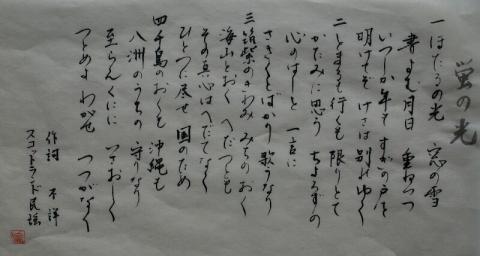 蛍の光
一 ほたるの光 窓の雪
書よむ月日 重ねつつ
いつしか年も すぎの戸を
明けてぞ けさは 別れゆく
二 とまるも行くも 限りとて
かたみに思う ちよろずの
心のはしを 一言に
さきくとばかり 歌うなり
三 筑紫のきわみ みちのおく
海山とおく へだつとも
その真心は へだてなく
ひとつに尽せ 国のため
四 千島のおくも 沖縄も
八洲のうちの 守りなり
至らんくにに いさおしく
つとめよ わがせ つつがなく
作詞 不詳
スコットランド民謡